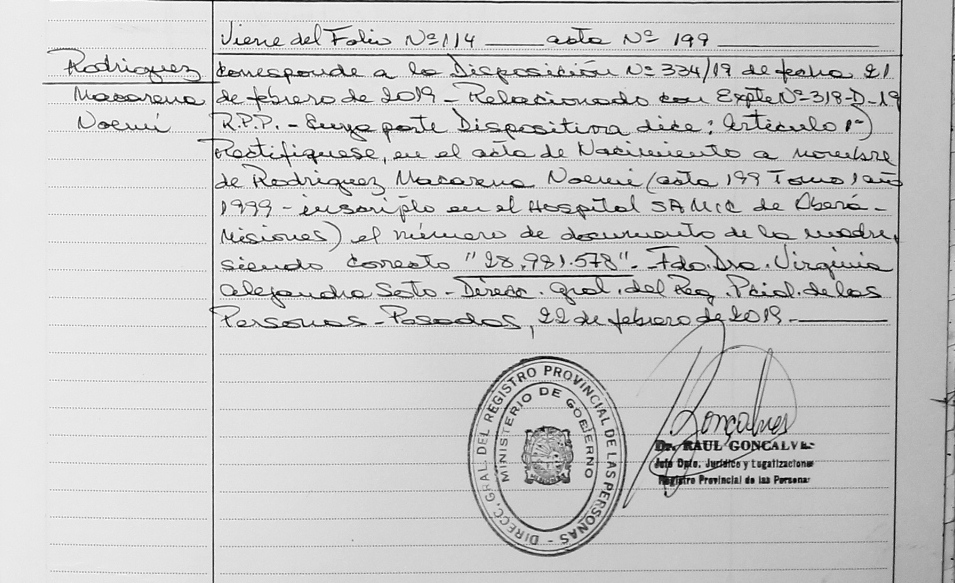 Viene del Folio Nº 114 ____ acta Nº 199 ____
Rodriguez
Macarena
Noemí
Corresponde a la Disposición Nº 334/19 de fecha 21
de febrero de 2019 - Relacionado con Expte Nº 318-D-19
R.P.P. - Cuya parte Dispositiva dice: Artículo 1º)
Rectifíquese, en el acta de Nacimiento a nombre
de Rodriguez Macarena Noemí (acta 199 Tomo 1 año
1999 - inscripto en el Hospital SAMIC de Oberá -
Misiones) el número de documento de la madre,
siendo correcto "28.981.578" - Fdo. Dra. Virginia
Alejandra Soto - Direcc. Gral. del Reg. Pcial. de las
Personas - Posadas, 22 de febrero de 2019. ____
DIRECC. GRAL. DEL REGISTRO PROVINCIAL DE LAS PERSONAS -
MINISTERIO DE GOBIERNO
Goncalves
Dr. RAUL GONCALVES
Jefe Dpto. Jurídico y Legalizaciones
Registro Provincial de las Personas